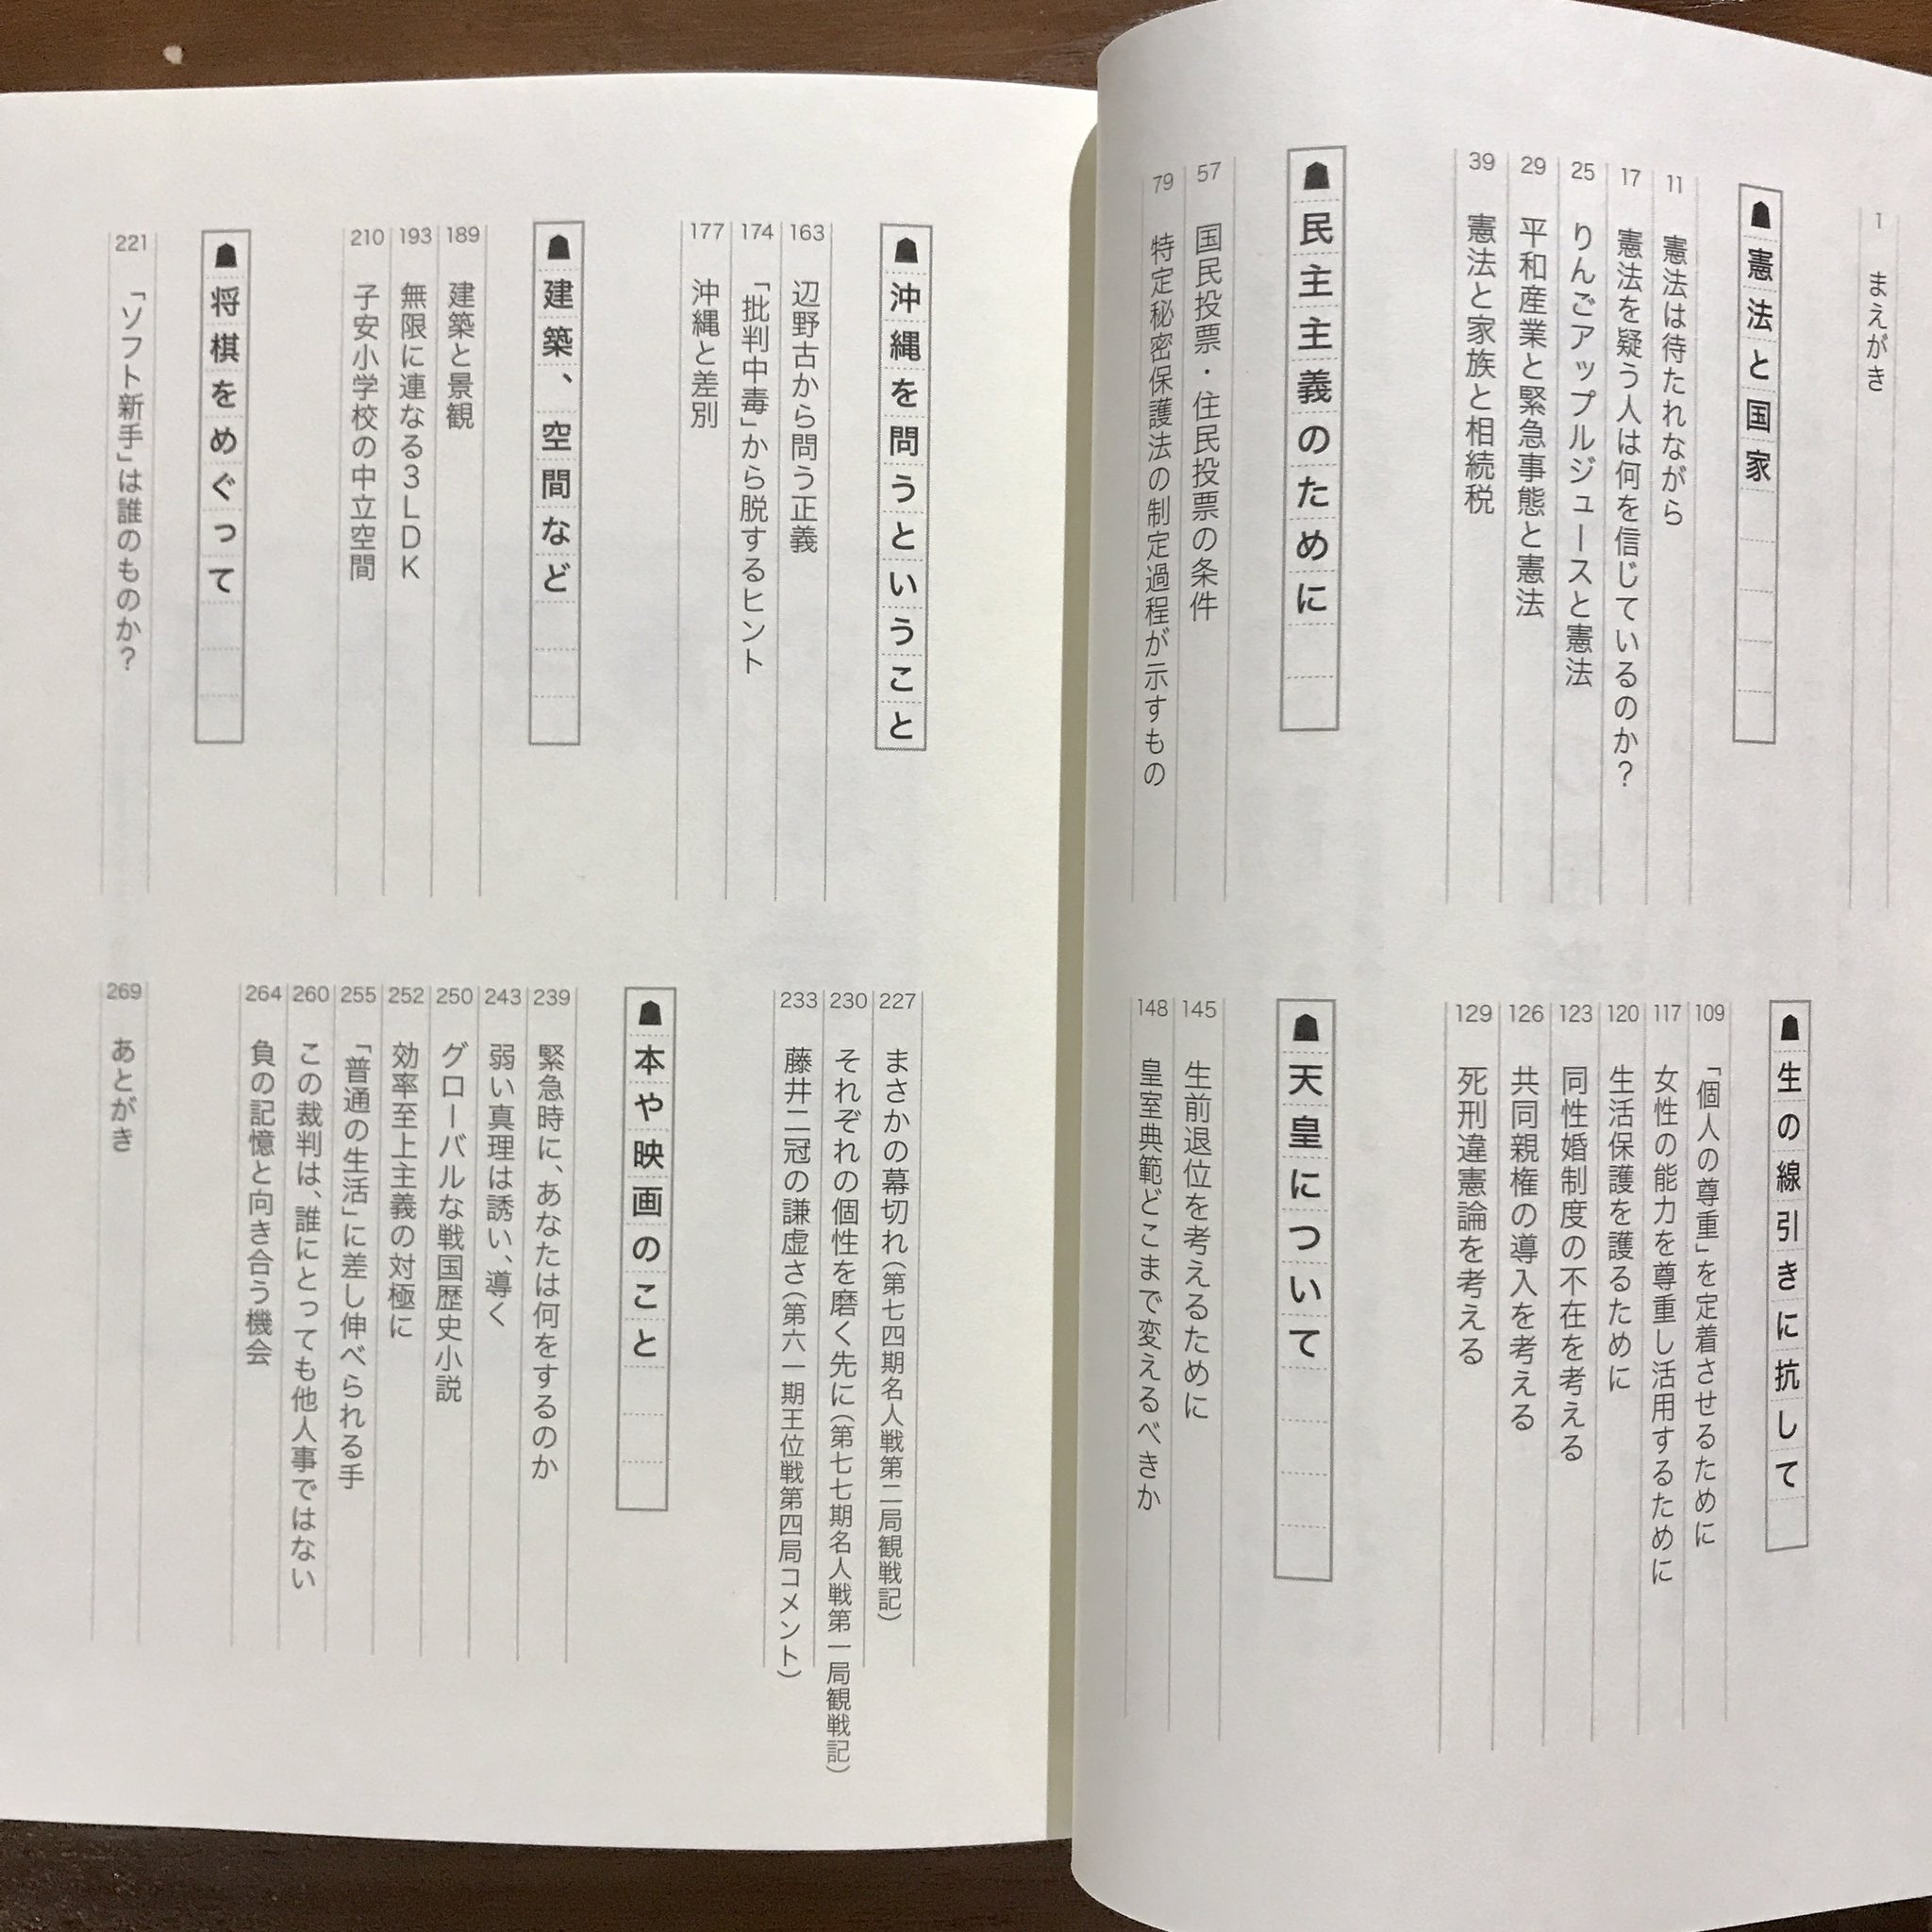 1 まえがき
憲法と国家
11 憲法は待たれながら
17 憲法を疑う人は何を信じているのか？
25 りんごアップルジュースと憲法
29 平和産業と緊急事態と憲法
39 憲法と家族と相続税
民主主義のために
57 国民投票・住民投票の条件
79 特定秘密保護法の制定過程が示すもの
生の線引きに抗して
109 「個人の尊重」を定着させるために
117 女性の能力を尊重し活用するために
120 生活保護を護るために
123 同性婚制度の不在を考える
126 共同親権の導入を考える
129 死刑違憲論を考える
天皇について
145 生前退位を考えるために
148 皇室典範どこまで変えるべきか
沖縄を問うということ
163 辺野古から問う正義
174 「批判中毒」から脱するヒント
177 沖縄と差別
建築、空間など
189 建築と景観
193 無限に連なる3LDK
210 子安小学校の中立空間
将棋をめぐって
221 「ソフト新手」は誰のものか？
227 まさかの幕切れ（第七四期名人戦第二局観戦記）
230 それぞれの個性を磨く先に（第七七期名人戦第一局観戦記）
233 藤井二冠の謙虚さ（第六一期王位戦第四局コメント）
本や映画のこと
239 緊急時に、あなたは何をするのか
243 弱い真理は誘い、導く
250 グローバルな戦国歴史小説
252 効率至上主義の対極に
255 「普通の生活」に差し伸べられる手
260 この裁判は、誰にとっても他人事ではない
264 負の記憶と向き合う機会
269 あとがき